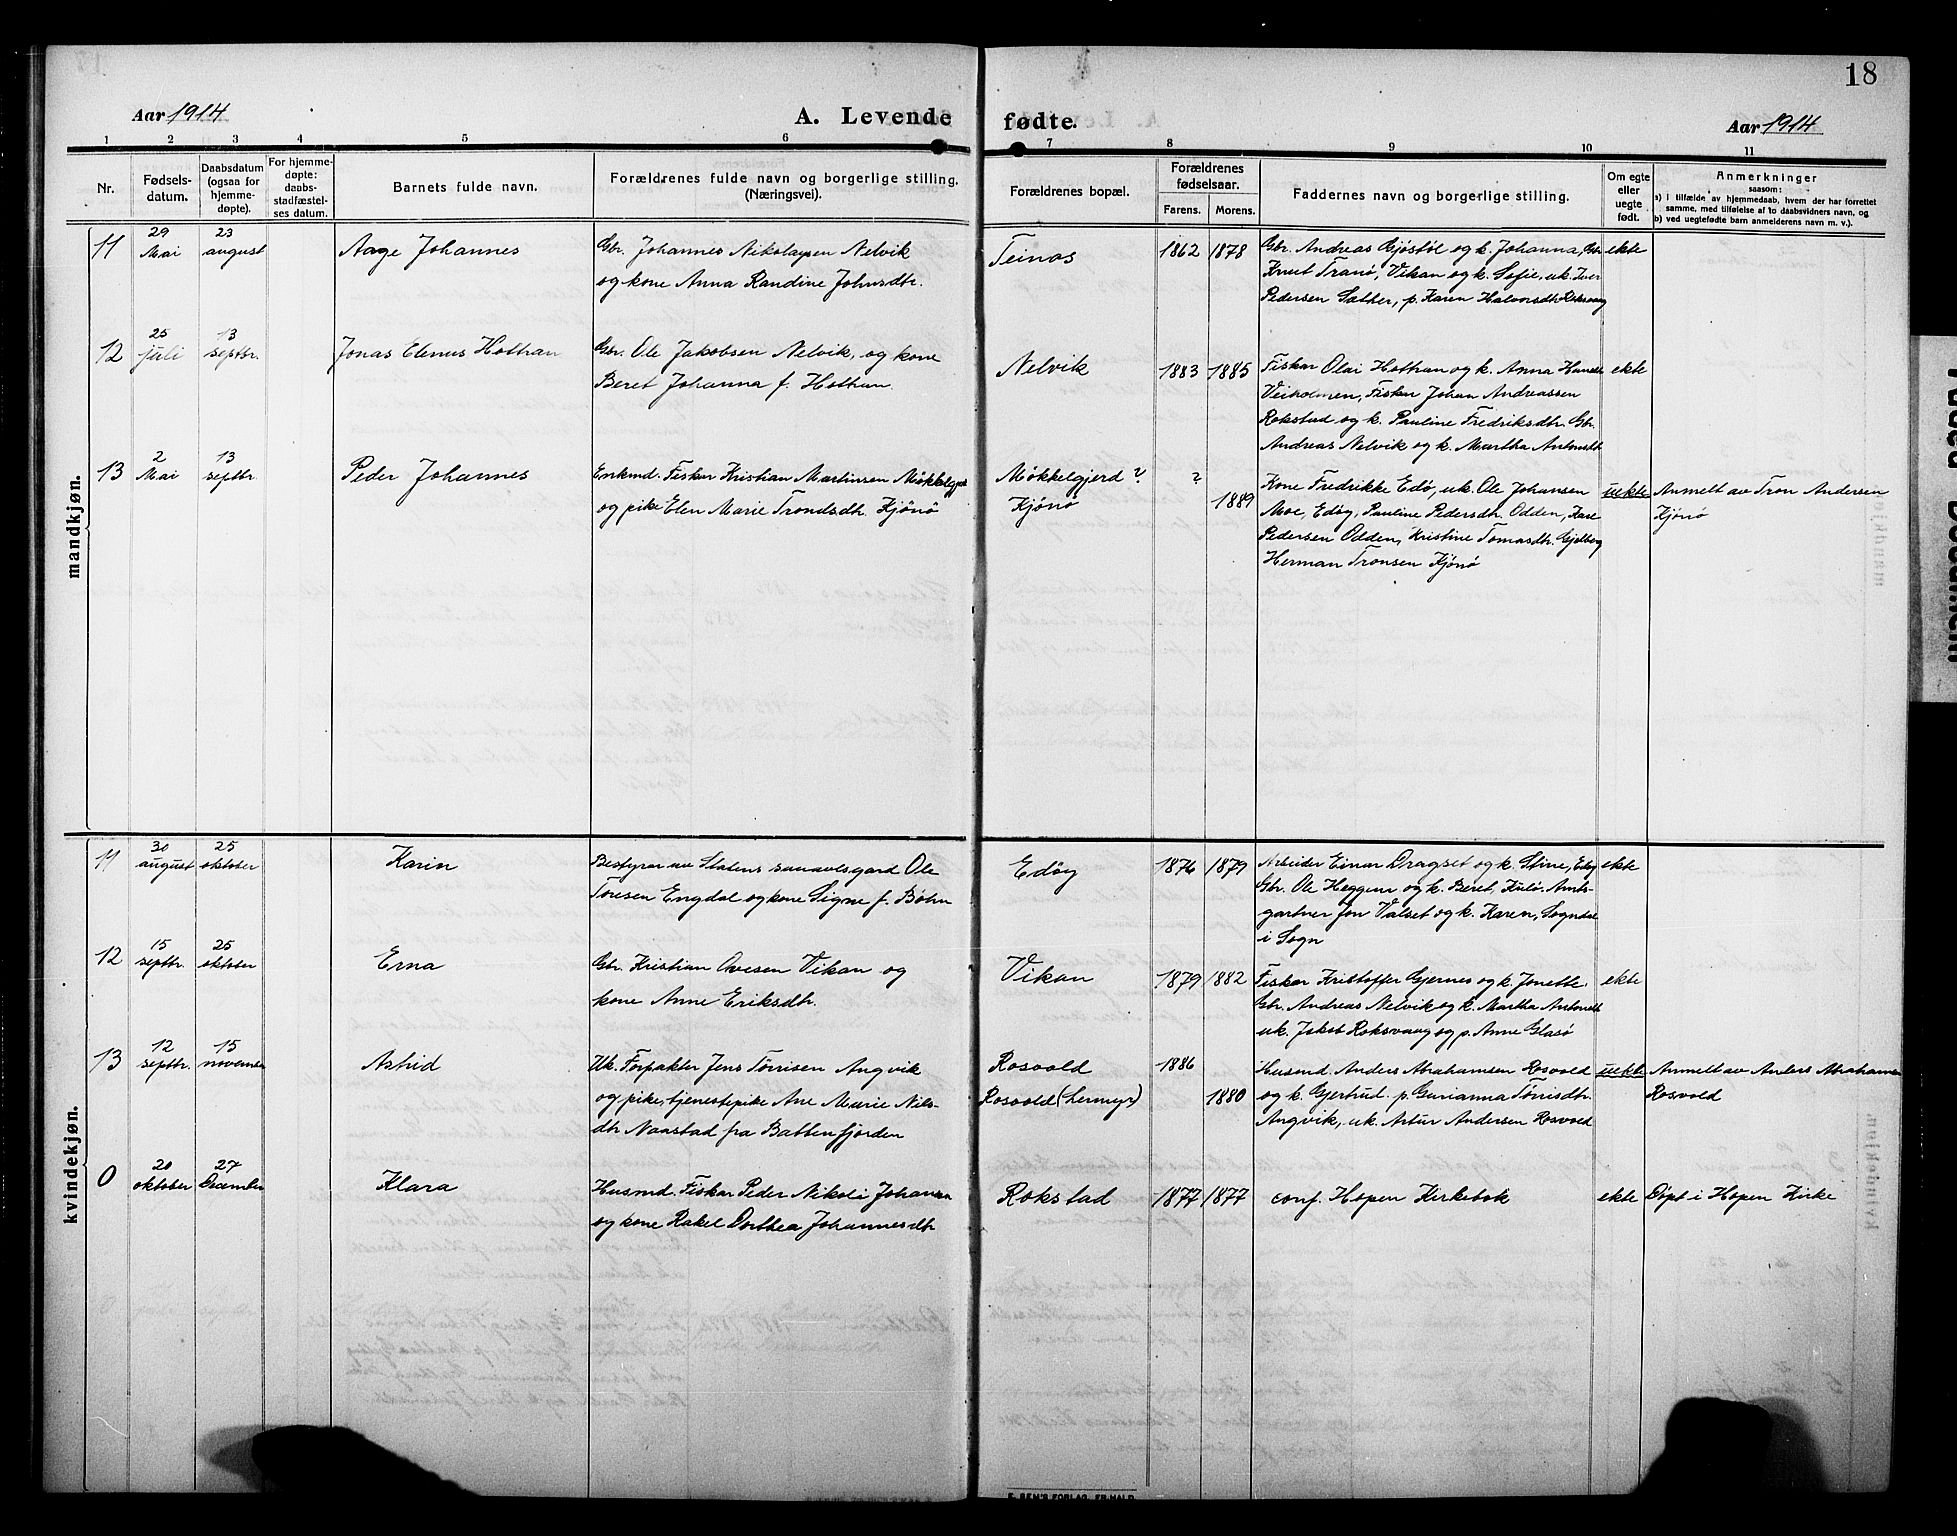 18
Aar 1914
A. Levende fødte.
Aar 1914
1 2 3 4 5 6 7 8 9 10 11
Nr.
Fødsels-
datum.
Daabsdatum
(ogsaa for
hjemme-
døpte).
For hjemme-
døpte:
daabs-
stadfæstel-
ses datum.
Barnets fulde navn.
Forældrenes fulde navn og borgerlige stilling.
(Næringsvei).
Forældrenes bopæl.
Forældrenes
fødselsaar.
Farens. Morens.
Faddernes navn og borgerlige stilling.
Om egte
eller
uegte
født.
Anmerkninger
saasom:
a) i tilfælde av hjemmedaab, hvem der har forrettet
samme, med tilføielse af to daabsvidners navn, og
b) ved uegtefødte barn anmelderens navn m. v.).
mandkjøn.
11
29
Mai
23
august
Aage Johannes
Gbr. Johannes Nikolaysen Nelvik
og kone Anna Randine Johnsdtr.
Teinos
1862 1878
Gbr. Andreas Gjøstøl og k. Johanna, Gbr.
Knut Tranø, Vikan og k. Sofie, uk. Iver
Pedersen Sæther, p. Karen Halvorsdtr Roksvaag
ekte
12
25
juli
13
septbr.
Jonas Elenus Hothan
Gbr. Ole Jakobsen Nelvik, og kone
Beret Johanna f. Hothan.
Nelvik
1883 1885
Fisker Olai Hothan og k. Anna
Veiholmen, Fisker Johan Andreassen
Rokstad og k. Pauline Fredriksdtr. Gbr.
Andreas Nelvik og k. Martha Antonsdtr
ekte
13
2
Mai
13
septbr.
Peder Johannes
Enkmd. Fisker Kristian Martinsen Møkkelgjerd
og pike Elen Marie Trondsdtr. Kjønø
Møkkelgjerd ?
Kjønø
?
1889
Kone Fredrikke Edø, uk. Ole Johansen
Moe, Edøy, Pauline Pedersdtr. Odden, Kare
Pedersen Odden, Kristine Tomasdtr. Gjelberg
Herman Tronsen Kjønø
uekte
Anmelt av Tron Andersen
Kjønø
kvindekjøn.
11
30
august
25
oktober
Karin
Bestyrer av Statens sauavlsgard Ole
Toresen Engdal og kone Signe f. Bøhn
Edøy
1876 1879
Arbeider Einar Dragset og k. Stine, Edøy
Gbr. Ole Heggem og k. Beret, Kulø. Amts-
gartner Jon Valset og k. Karen, Sogndal
i Sogn
ekte
12
15
septbr.
25
oktober
Erna
Gbr. Kristian Ovesen Vikan og
kone Anne Eriksdtr.
Vikan
1879 1882
Fisker Kristoffer Gjernes og k. Jonette.
Gbr. Andreas Nelvik og k. Martha Antonsdtr
uk. Jakob Roksvaag og p. Anne Glasø
ekte
13
12
septbr.
15
november
Astrid
Uk. Forpakter Jens Tørrisen Angvik
og pike, tjenestepike Ane Marie Nils-
dtr Naastad fra Battenfjorden
Rosvold
Rosvold (Lermyr)
1886
1880
Husmd. Anders Abrahamsen Rosvold
og k. Gjertrud. p. Gurianna Tørrisdtr.
Angvik, uk. Artur Andersen Rosvold
uekte
Anmelt av Anders Abrahamsen
Rosvold
0
20
oktober
27
December
Klara
Husmd. Fisker Peder Nikolai Johansen
og kone Rakel Dorthea Johannesdtr
Rokstad
1877 1877
conf. Hopen Kirkebok
ekte
Døpt i Hopen Kirke